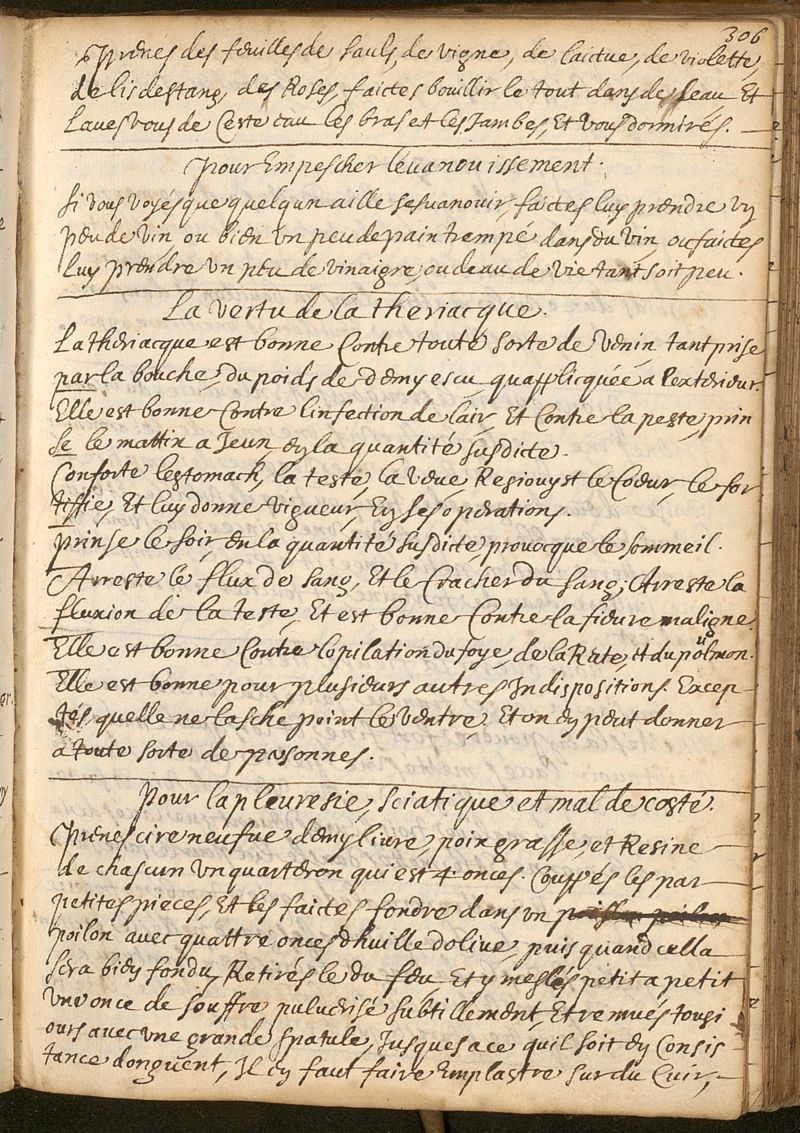 306
Prenes des feuilles de sauls, de vigne, de laictue, de violette,
de lis destang, des Roses, faictes bouillir le tout dans de leau, Et
Laves vous de Ceste eau les bras et les Jambes, Et vous dormirés.
Pour Empescher levanouissement.
Si vous voyés que quelqun aille sesvanouir, faictes luy prendre un
peu de vin, ou bien un peu de pain trempé dans du vin, ou faites
Luy prendre un peu de vinaigre, ou deau de vie tant soit peu.
La vertu de la theriacque.
La theriacque est bonne Contre toute sorte de venin tant prise
par la bouche, du poids de demy escu quapplicquée a Lexterieur.
Elle est bonne Contre linfection de lair, Et Contre la peste, prin
se le mattin a Jeun, en la quantité susdicte.
Conforte lestomach, la teste, la veue, Resiouyst le Coeur, le for
tiffie, Et luy donne vigueur, En ses operations.
Prinse le soir, en la quantité susdicte, provocque le sommeil.
Arreste le flux de sang, Et le Cracher du sang; Arreste la
fluxion de la teste, Et est bonne Contre la fievre maligne.
Elle est bonne Contre lopilation du foye, de la Rate, et du poülmon.
Elle est bonne pour plusieurs autres Indispositions. Excep
tés, quelle ne lasche point le ventre, Et on en peut donner
a toute sorte de personnes.
Pour la pleuresie, sciatique et mal de costé.
Prenes cire neufve demy livre, poix grasse, et Resine
de chascun un quarteron qui est 4. onces. Couppés les par
petites pieces, Et les faictes fondre dans un
poilon avec quattre onces dhuille dolive, puis quand cella
sera bien fondu, Retirés le du feu Et y meslés petit a petit
une once de souffre pulverisé subtillement, Et remués tousi
ours avec une grande spatule, Jusques a ce quil soit en Consis
tance donguent, Il en faut faire Emplastre sur du Cuir,